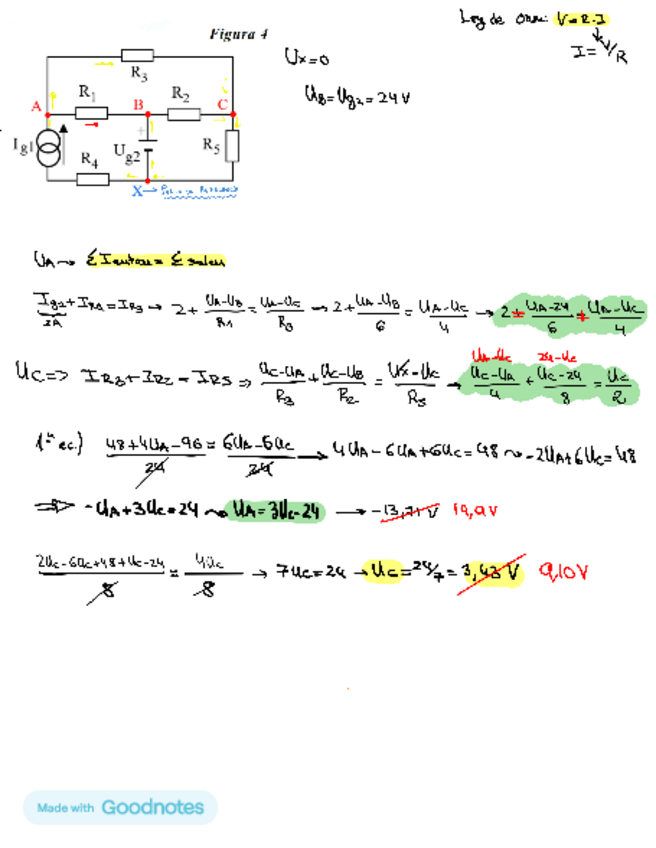 Figura 4
Ley de Ohm: V=R·I
I= V/R
Ux=0
UB=Ug2=24V
R3
A R1 B R2 C
Ig1 R4 Ug2 R5
X→
UA→ ΣIentran=Σsalen
→ 2+ (UA-UB)/R1 = (UA-UC)/R3 → 2+ (UA-UB)/6 = (UA-UC)/4 → 2± (UA-24)/6 ± (UA-UC)/4
2A
UA-UC 24-UC
UC=> IR3+IR2=IR5 => (UC-UA)/R3 + (UC-UB)/R2 = (UX-UC)/R5 → (UC-UA)/4 + (UC-24)/8 = UC/2
1ª ec.) (48+4UA-96)/24 = (6UA-6UC)/24 → 4UA-6UA+6UC=48 ~ -2UA+6UC=48
=> -UA+3UC=24 ~ UA=3UC-24 → -13,71 V 19,9V
(2UC-6UC+48+UC-24)/8 = 4UC/8 → 7UC=24 → UC=24/7=3,43 V 9,10V
Made with Goodnotes